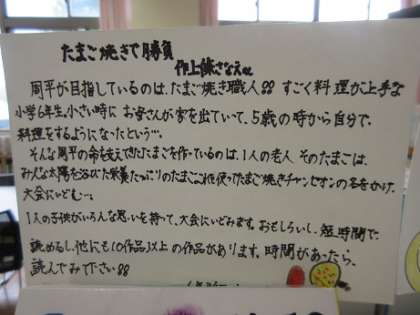 たまご焼きで勝負
作上條さなえ
周平が目指しているのは、たまご焼き職人!! すごく料理が上手な
小学6年生。小さい時にお母さんが家を出ていて、5歳の時から自分で、
料理をするようになったという…。
そんな周平の命を支えてきたたまごを作っているのは、1人の老人 そのたまごは、
みんな太陽を浴びた栄養たっぷりのたまごこれを使ってたまご焼きチャンピオンの名をかけ、
大会にいどむ…。
1人の子供がいろんな思いを持って、大会にいどみます。おもしろいし、短時間で、
読めるし、他にも10作品以上の作品があります。時間があったら、
読んでみて下さい!!